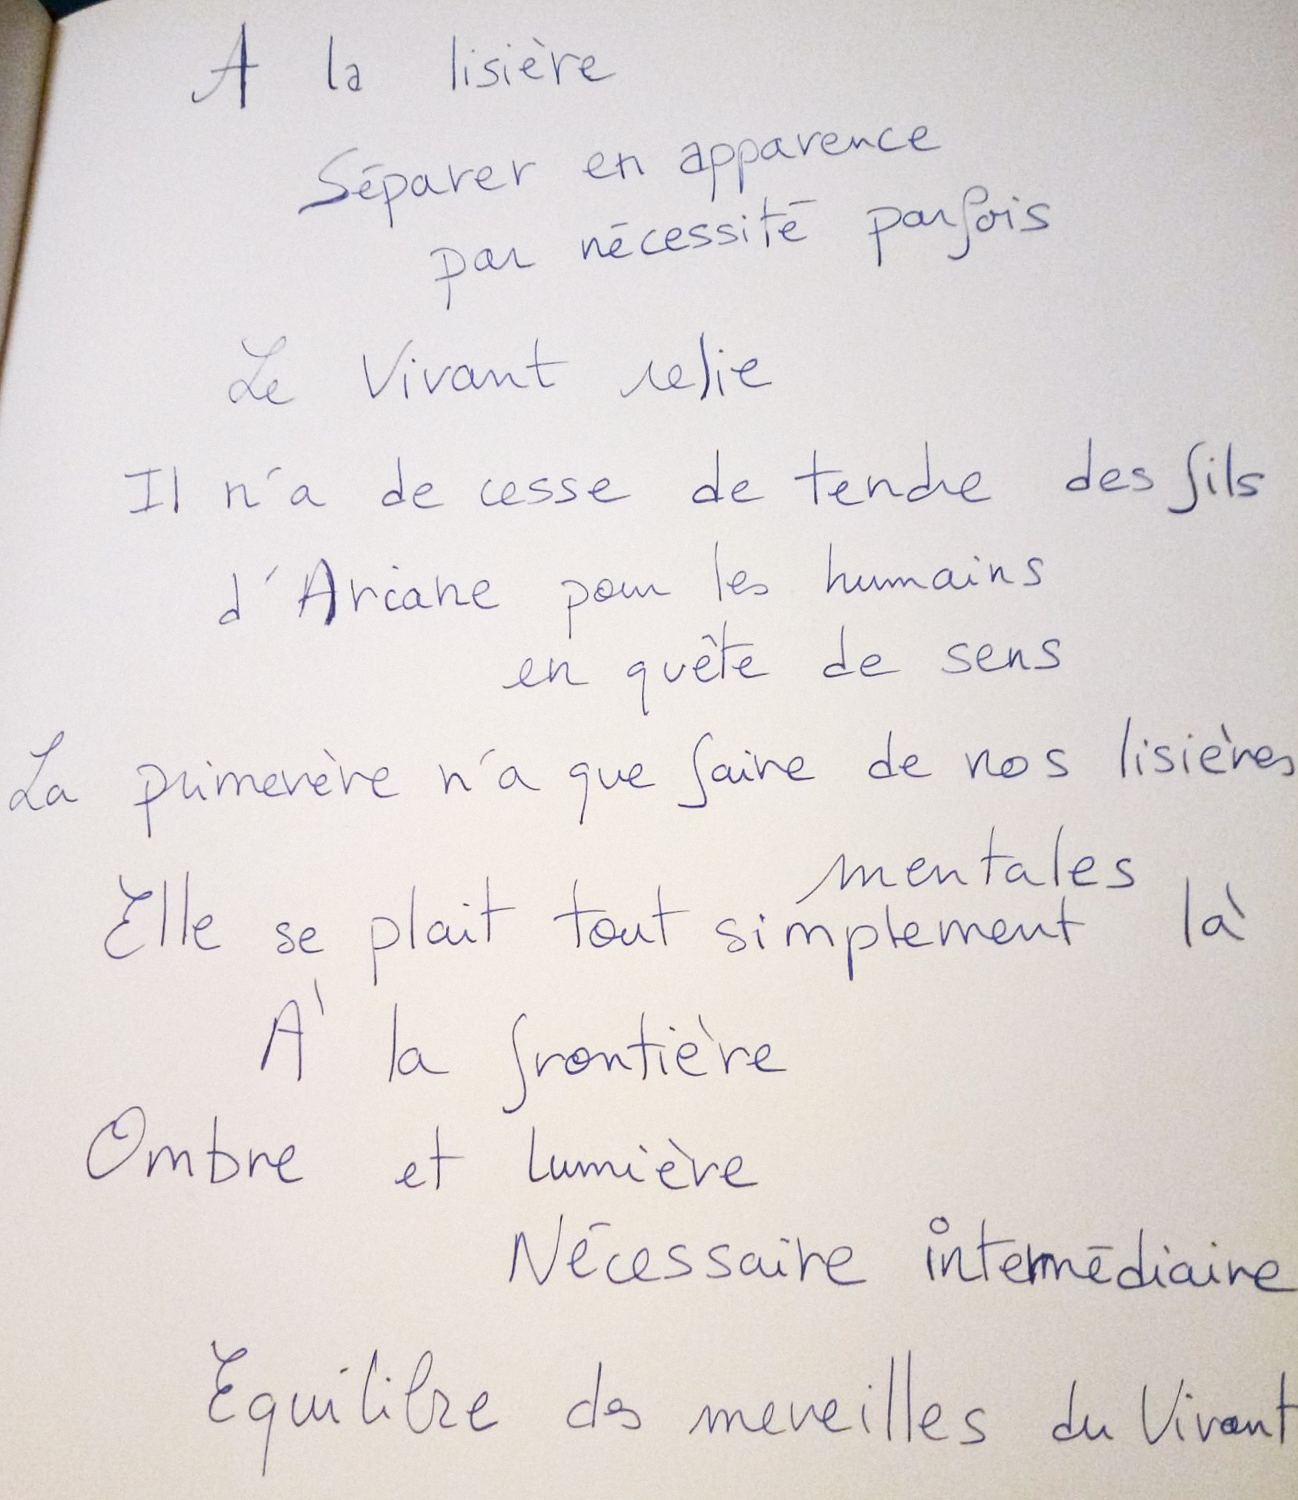 A la lisière
Séparer en apparence
par nécessité parfois
Le Vivant relie
Il n'a de cesse de tendre des fils
d'Ariane pour les humains
en quête de sens
La primevère n'a que faire de nos lisières
mentales
Elle se plait tout simplement là
À la frontière
Ombre et lumière
Nécessaire intermédiaire
Equilibre des merveilles du Vivant